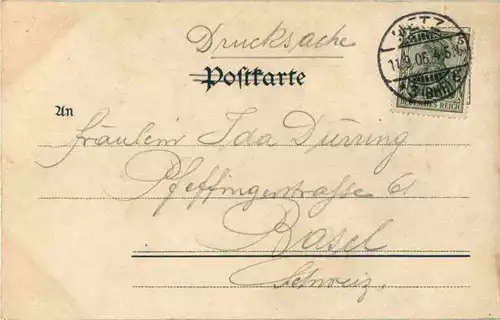 Drucksache
METZ
11.9.05
* 3 (BHF) g
DEUTSCHES REICH
Postkarte
An
Fräulein Ida Dürring
Pfeffingerstrasse 61
Basel
Schweiz.